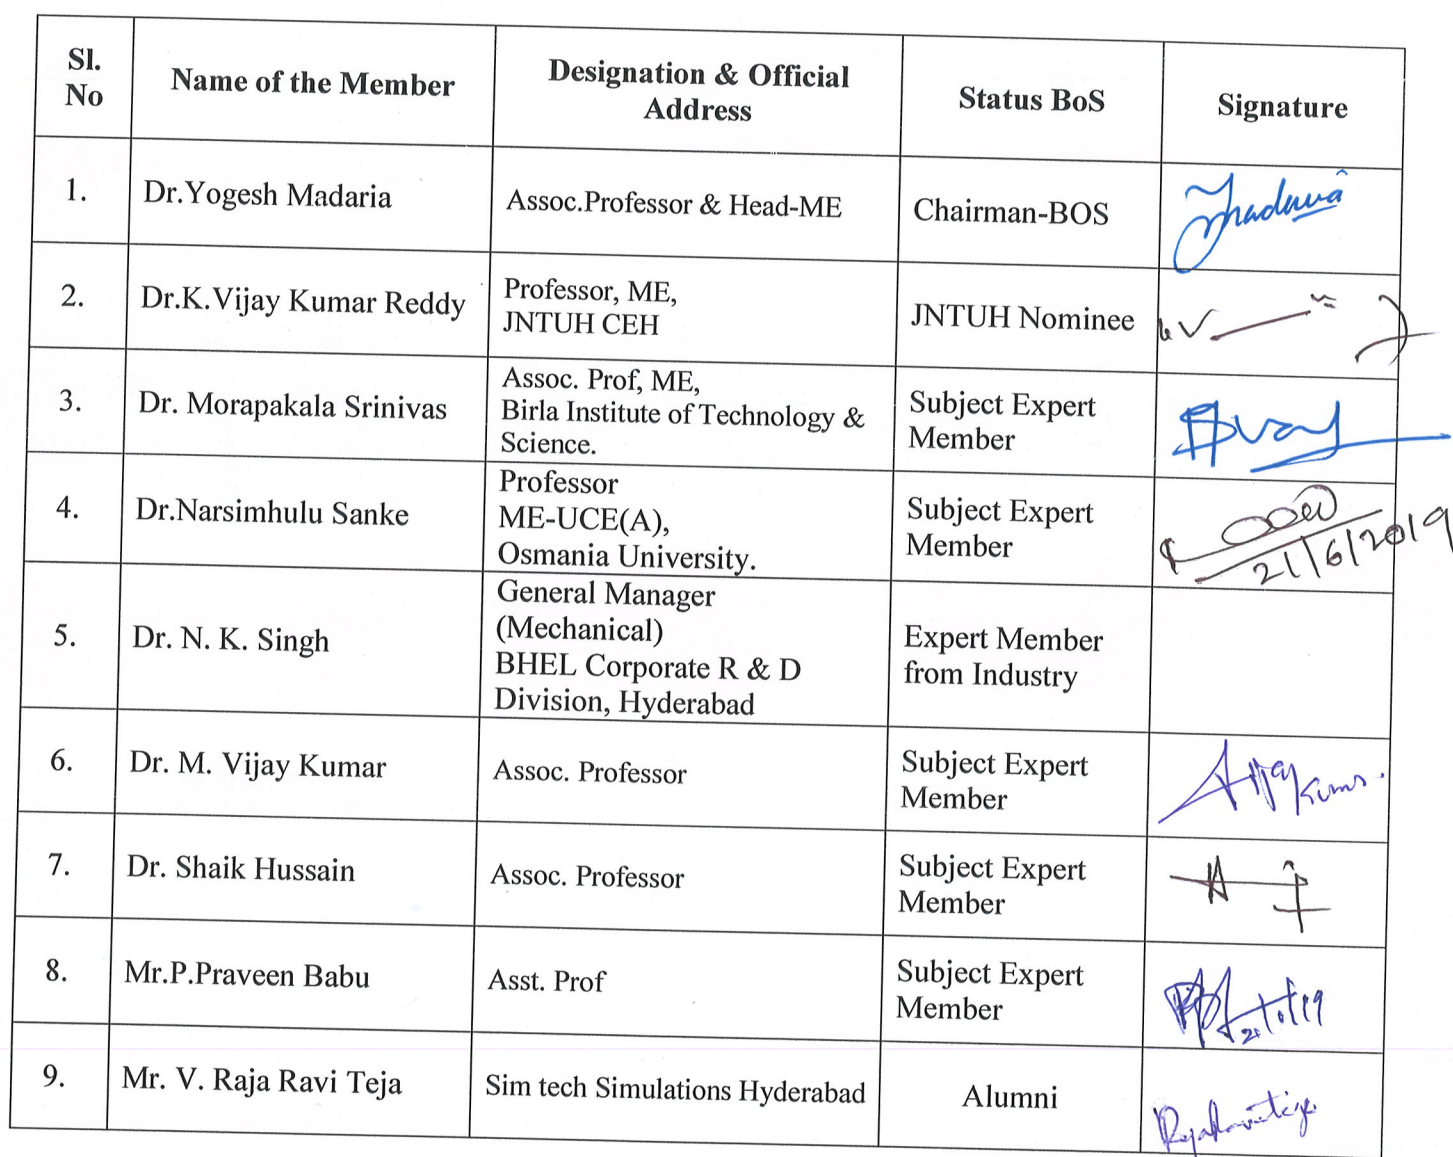 Sl. No
Name of the Member
Designation & Official Address
Status BoS
Signature
1.
Dr.Yogesh Madaria
Assoc.Professor & Head-ME
Chairman-BOS
2.
Dr.K.Vijay Kumar Reddy
Professor, ME,
JNTUH CEH
JNTUH Nominee
3.
Dr. Morapakala Srinivas
Assoc. Prof, ME,
Birla Institute of Technology &
Science.
Subject Expert
Member
4.
Dr.Narsimhulu Sanke
Professor
ME-UCE(A),
Osmania University.
Subject Expert
Member
21/6/2019
5.
Dr. N. K. Singh
General Manager
(Mechanical)
BHEL Corporate R & D
Division, Hyderabad
Expert Member
from Industry
6.
Dr. M. Vijay Kumar
Assoc. Professor
Subject Expert
Member
7.
Dr. Shaik Hussain
Assoc. Professor
Subject Expert
Member
8.
Mr.P.Praveen Babu
Asst. Prof
Subject Expert
Member
9.
Mr. V. Raja Ravi Teja
Sim tech Simulations Hyderabad
Alumni